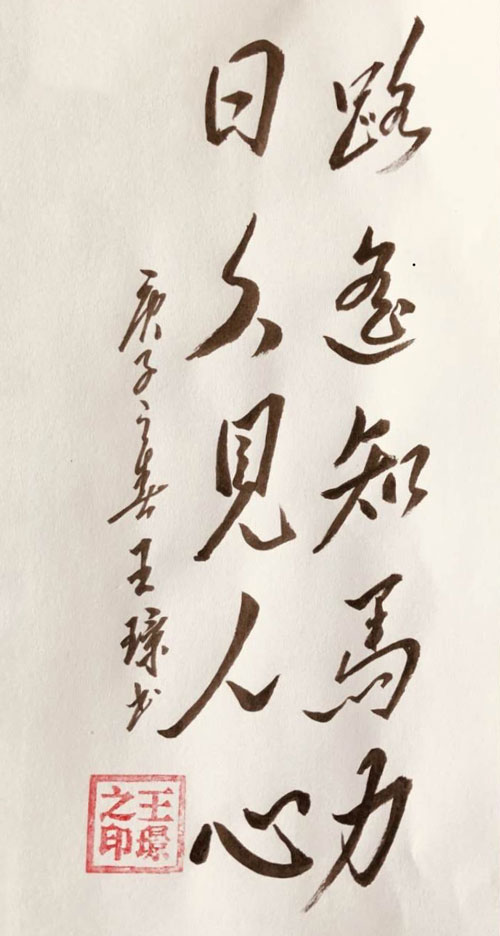 路遙知馬力
日久見人心
庚子之春王璟书
王璟之印